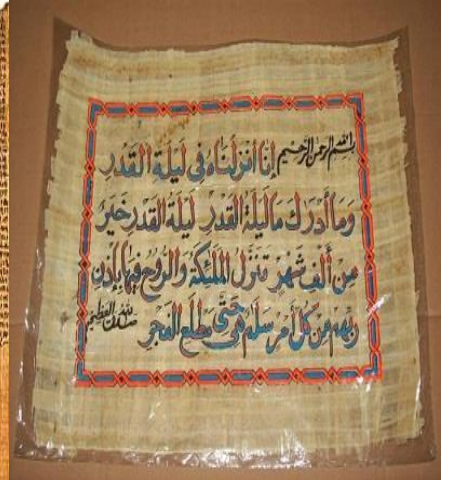 بسم الله الرحمن الرحيم إنا أنزلناه في ليلة القدر
وما أدرك ما ليلة القدر ليلة القدر خير
من ألف شهر تنزل الملئكة والروح فيها بإذن
ربهم من كل أمر سلم هي حتى مطلع الفجر
صدق الله العظيم